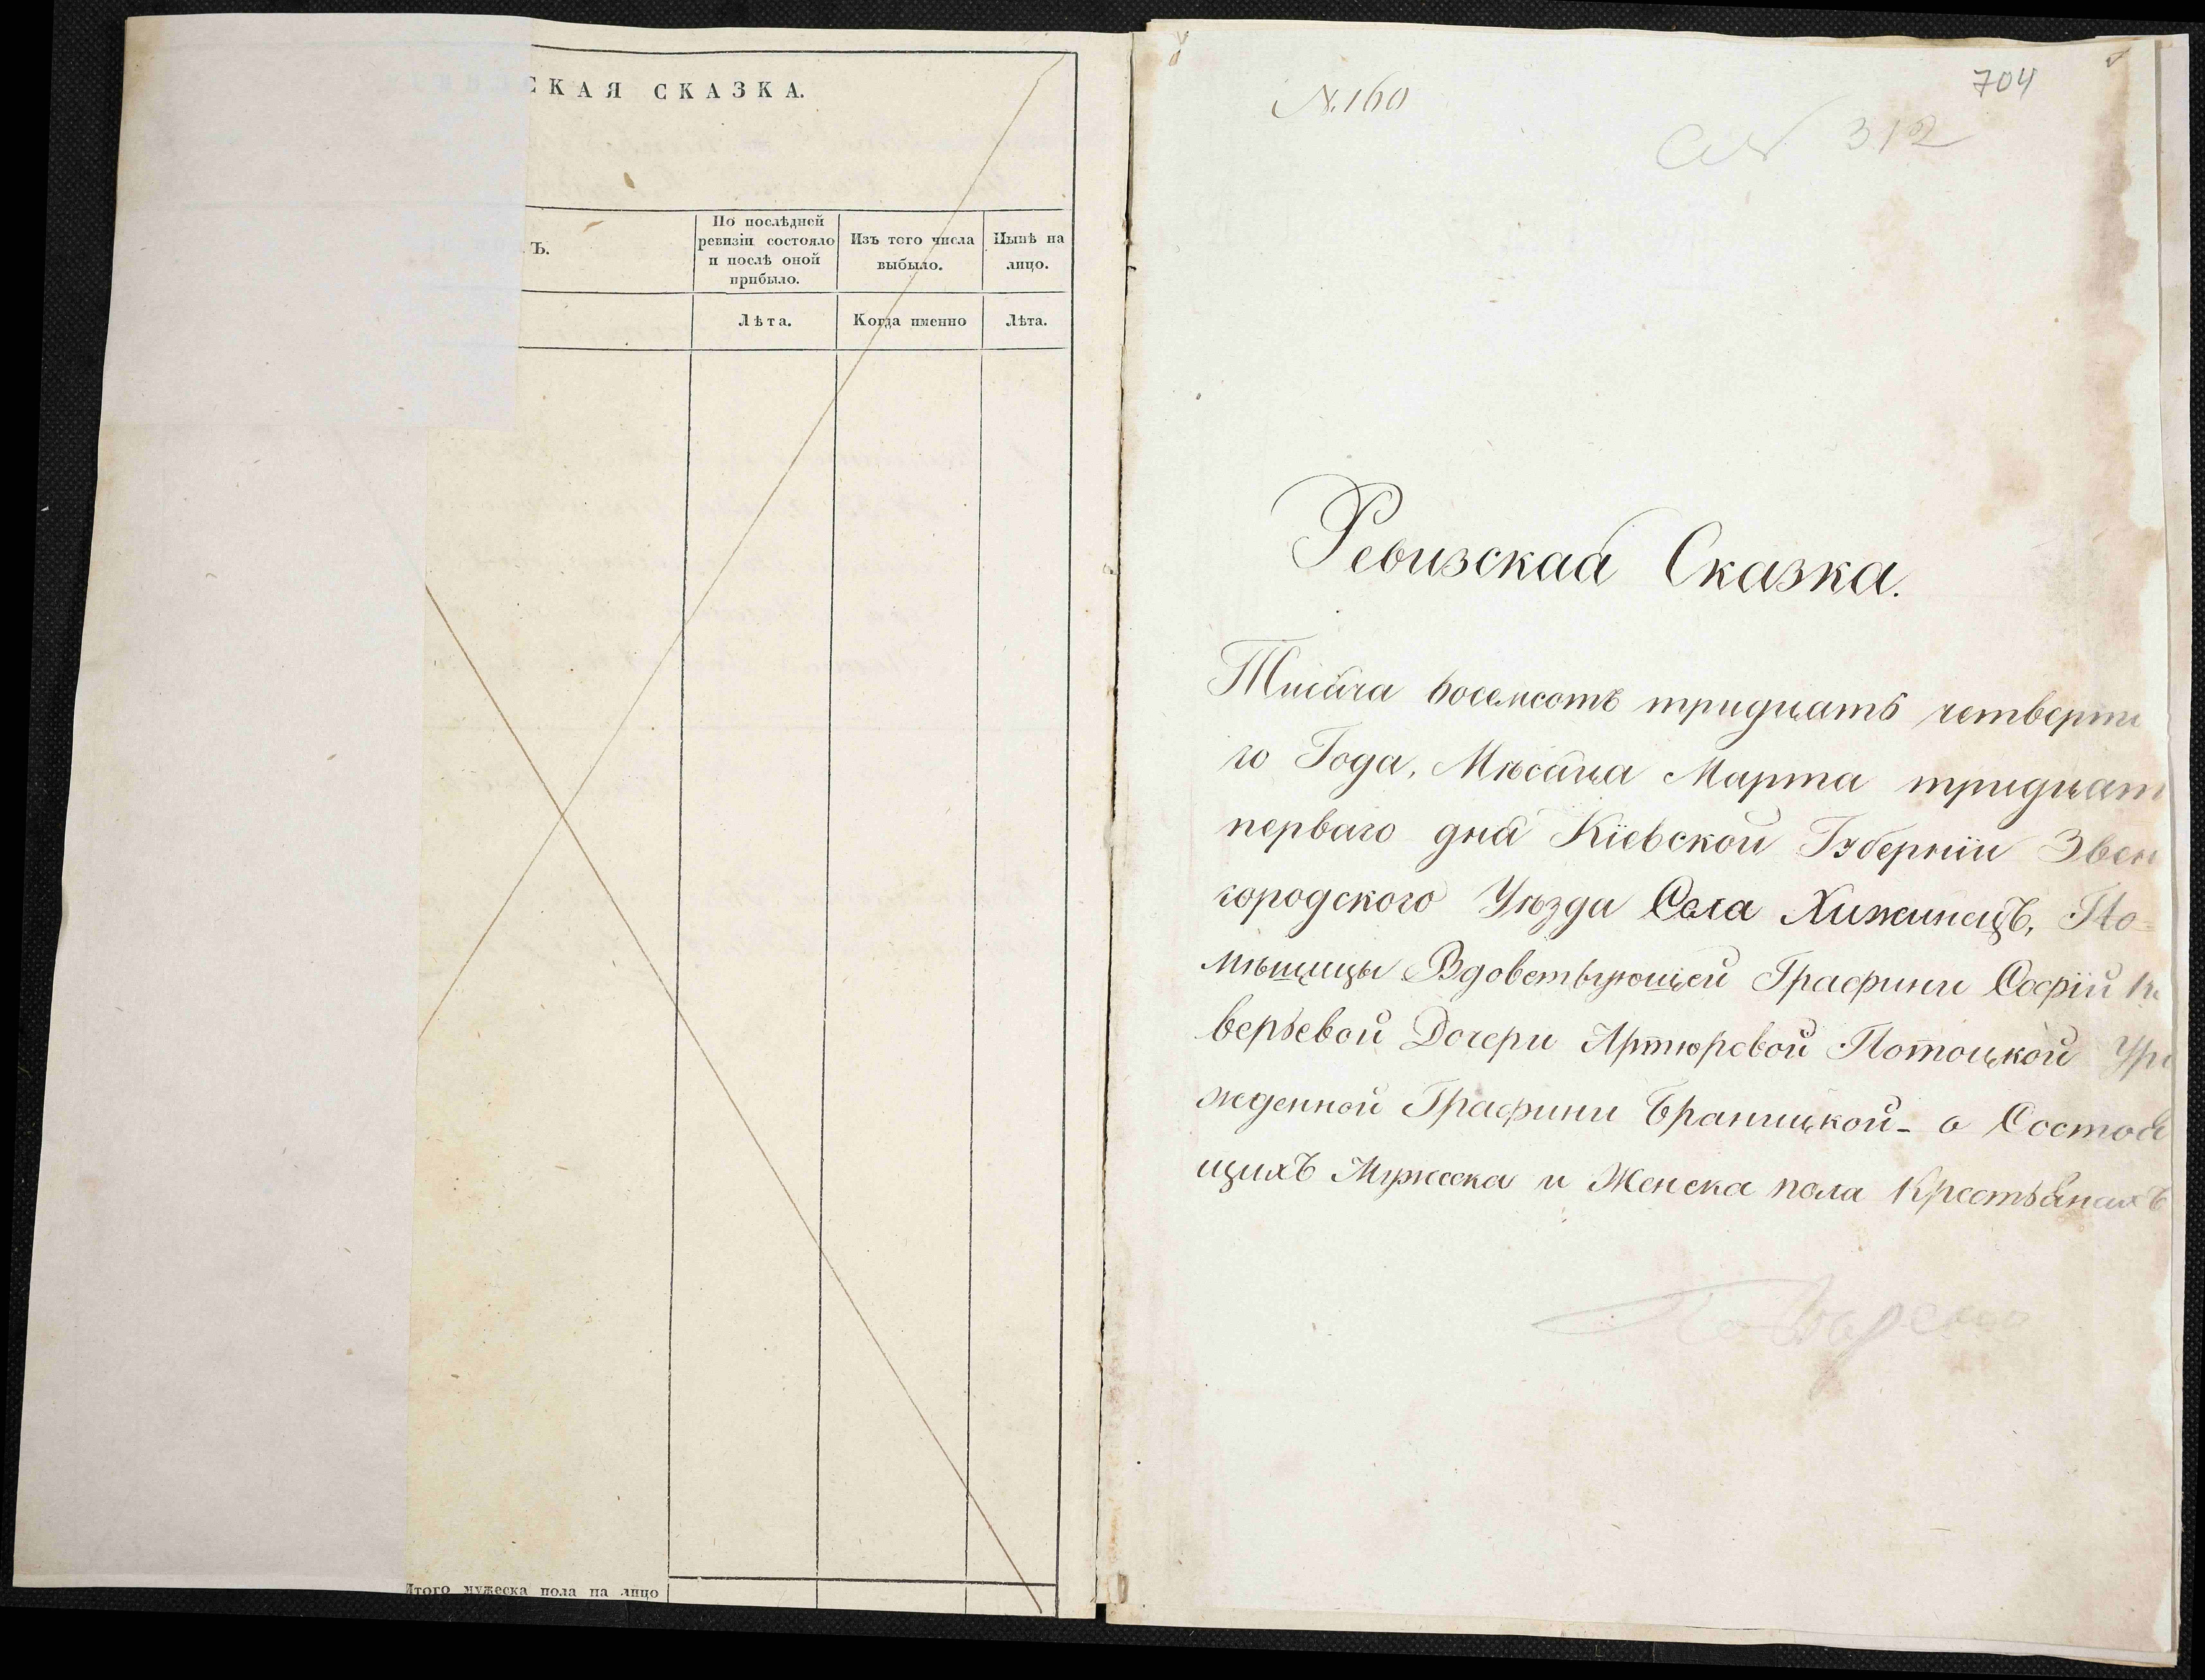 СКАЯ СКАЗКА.
Ъ.
По послѣдней
ревизіи состояло
и послѣ оной
прибыло.
Изъ того числа
выбыло.
Нынѣ на
лицо.
Лѣта.
Когда именно
Лѣта.
Итого мужеска пола на лицо
N. 160
704
312
Ревизская Сказка.
Тисяча восемсотъ тридцать четверти
го Года, Мѣсяца Марта тридцат
перваго дня Кіевской Губерніи Звени
городского Уѣзда Села Хижинецъ, По=
мѣщицы Вдовствующей Графини Софіи К
верьевой Дочери Артюровой Потоцкой Уро
жденной Графини Браницкой - о Состоя
щихъ Мужеска и Женска пола Крестьянахъ